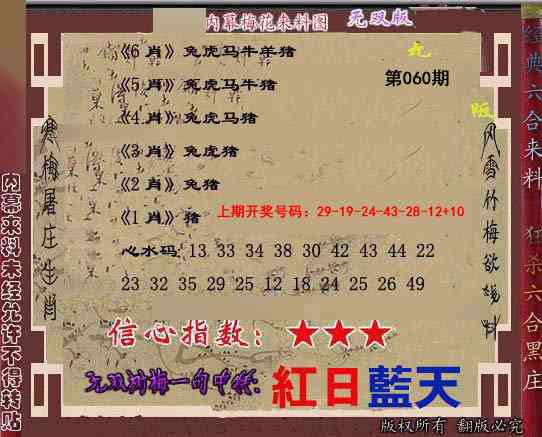 内幕梅花来料图 无双版
《6 肖》兔虎马牛羊猪
《5 肖》兔虎马牛猪
第060期
《4 肖》兔虎马猪
《3 肖》兔虎猪
《2 肖》兔猪
《1 肖》猪
上期开奖号码：29-19-24-43-28-12+10
心水码: 13 33 34 38 30 42 43 44 22
23 32 35 29 25 12 18 24 25 26 49
信心指数：★★★
紅日藍天
版权所有 翻版必究
寒梅屠庄生肖
内幕来料未经允许不得转贴
经典六合来料 狂杀六合黑庄